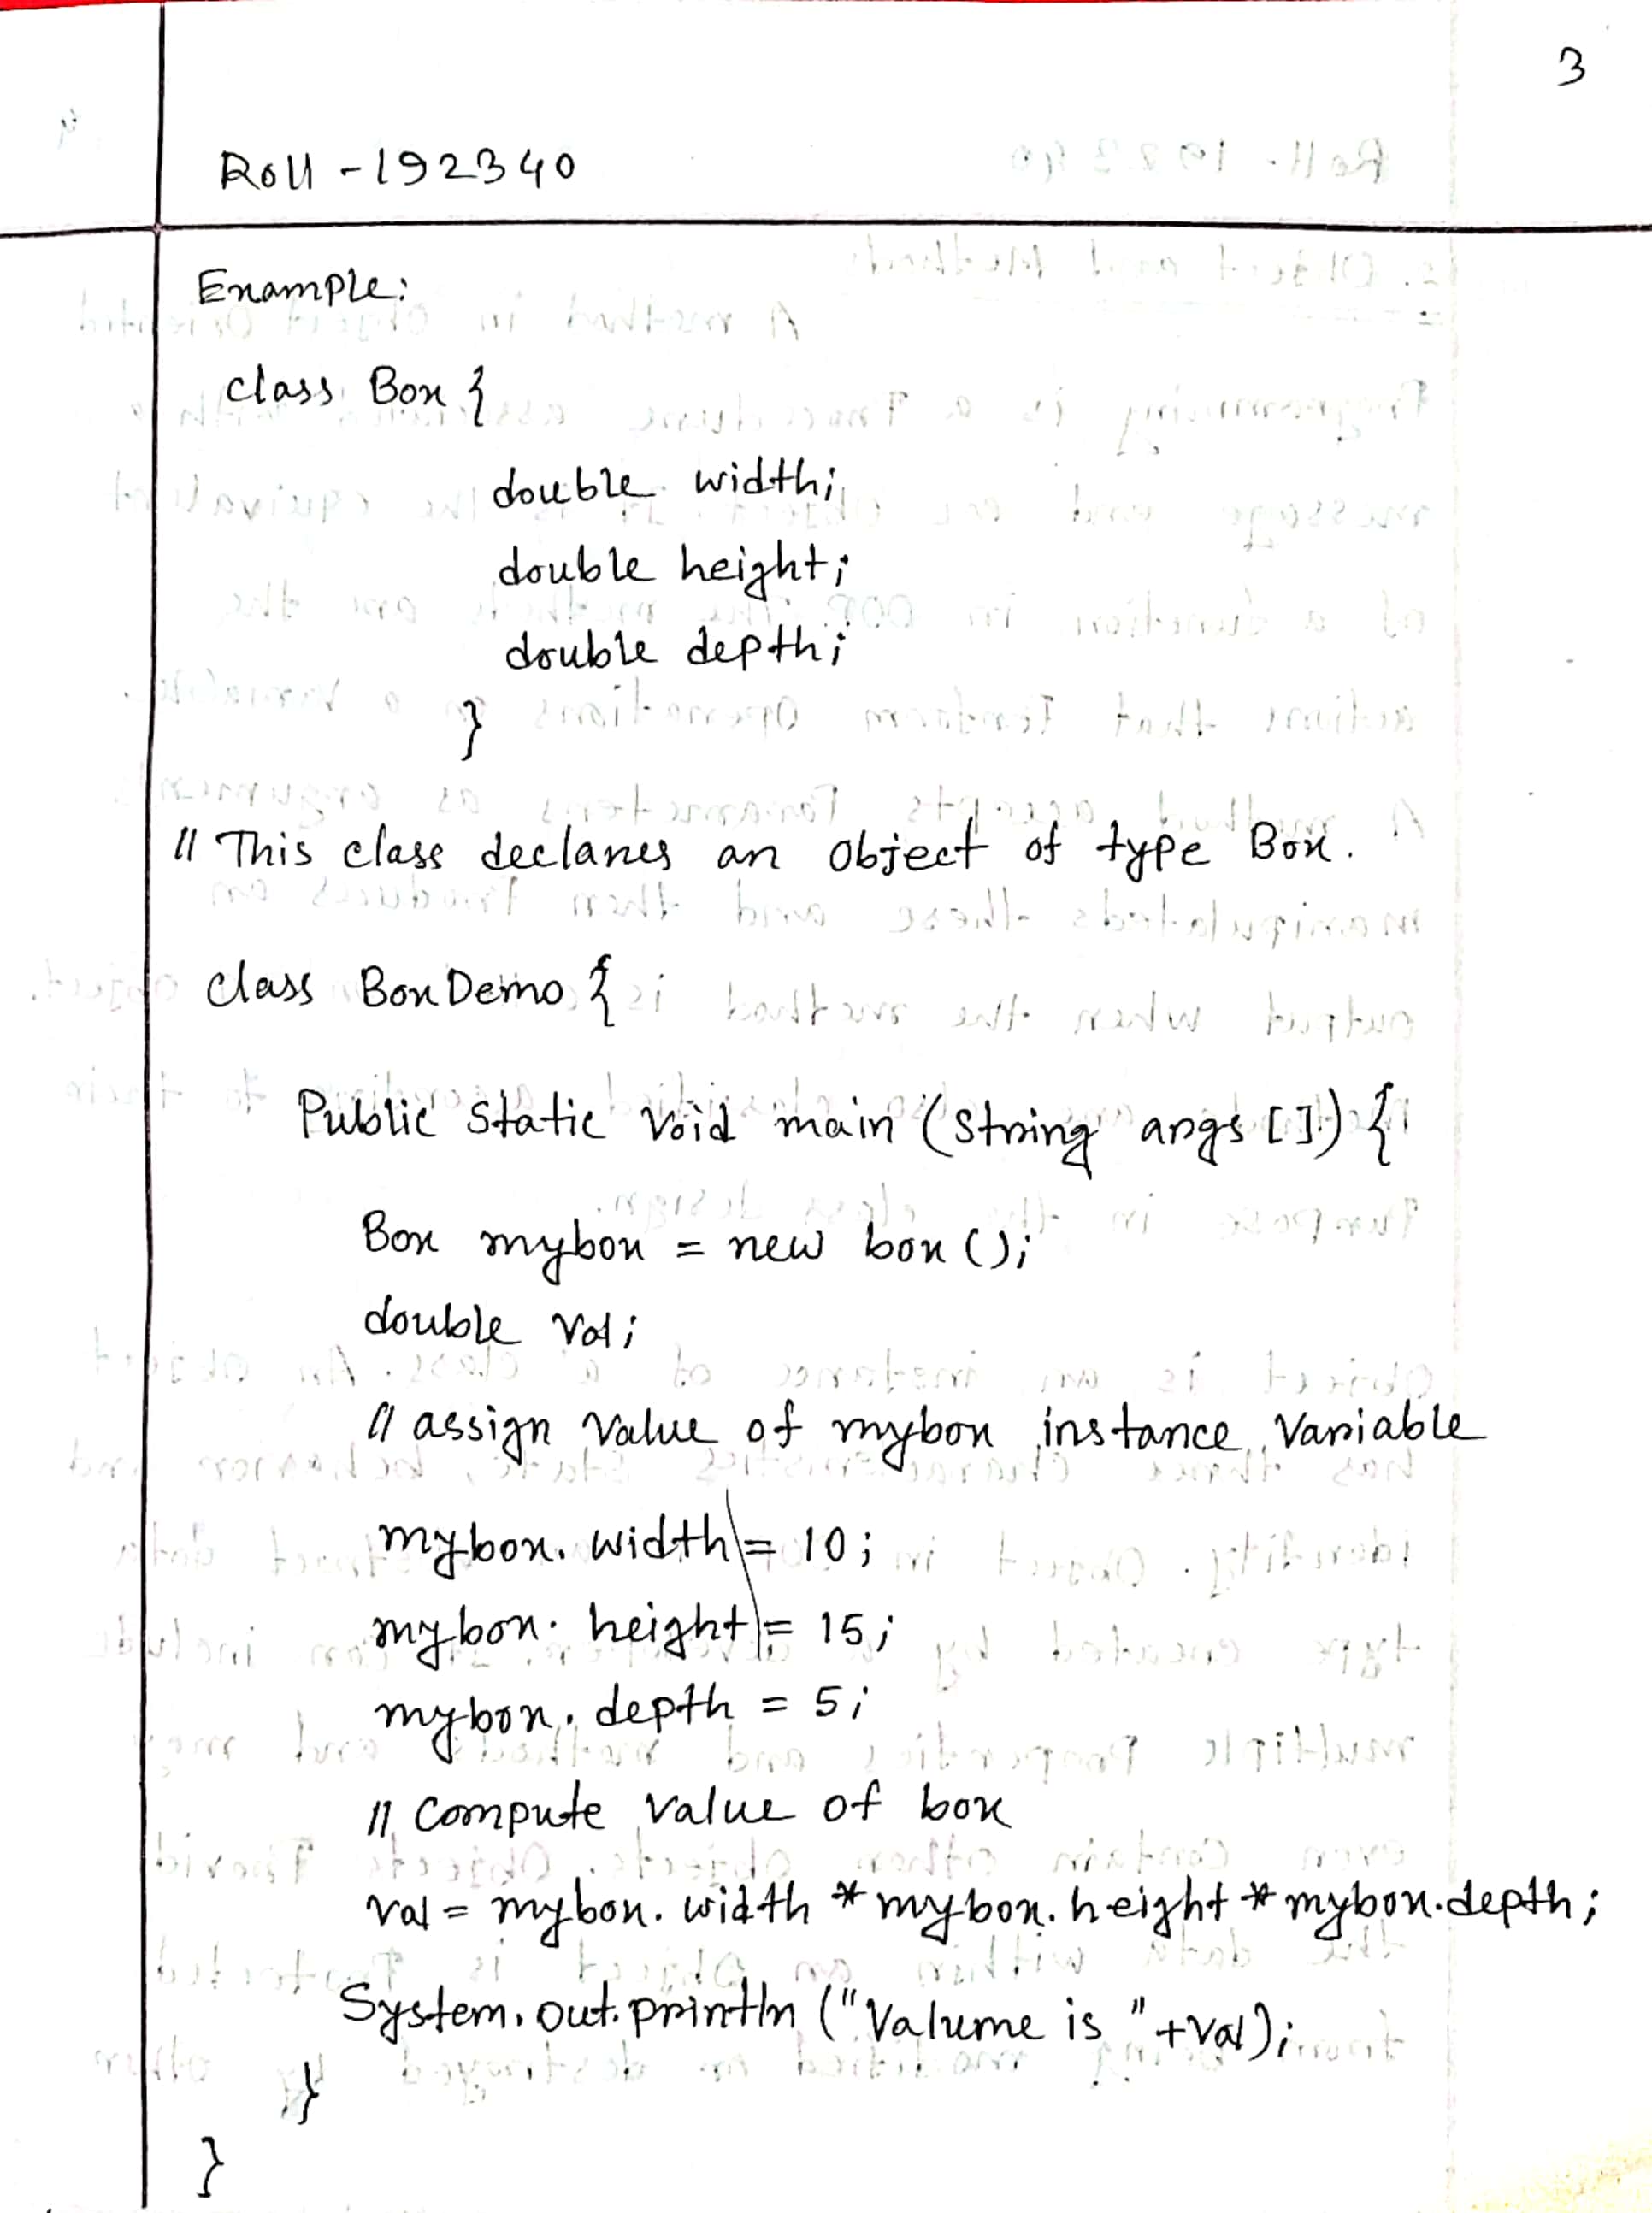 3
Roll - 192340
Example:
class Box {
double width;
double height;
double depth;
}
// This class declares an object of type Box.
class BoxDemo {
Public static void main (String args []) {
Box mybox = new box ();
double Val;
// assign value of mybox instance variable
mybox. width = 10;
mybox. height = 15;
mybox. depth = 5;
// Compute value of box
val = mybox. width * mybox. height * mybox.depth;
System.out.println ("Valume is " +val);
}
}